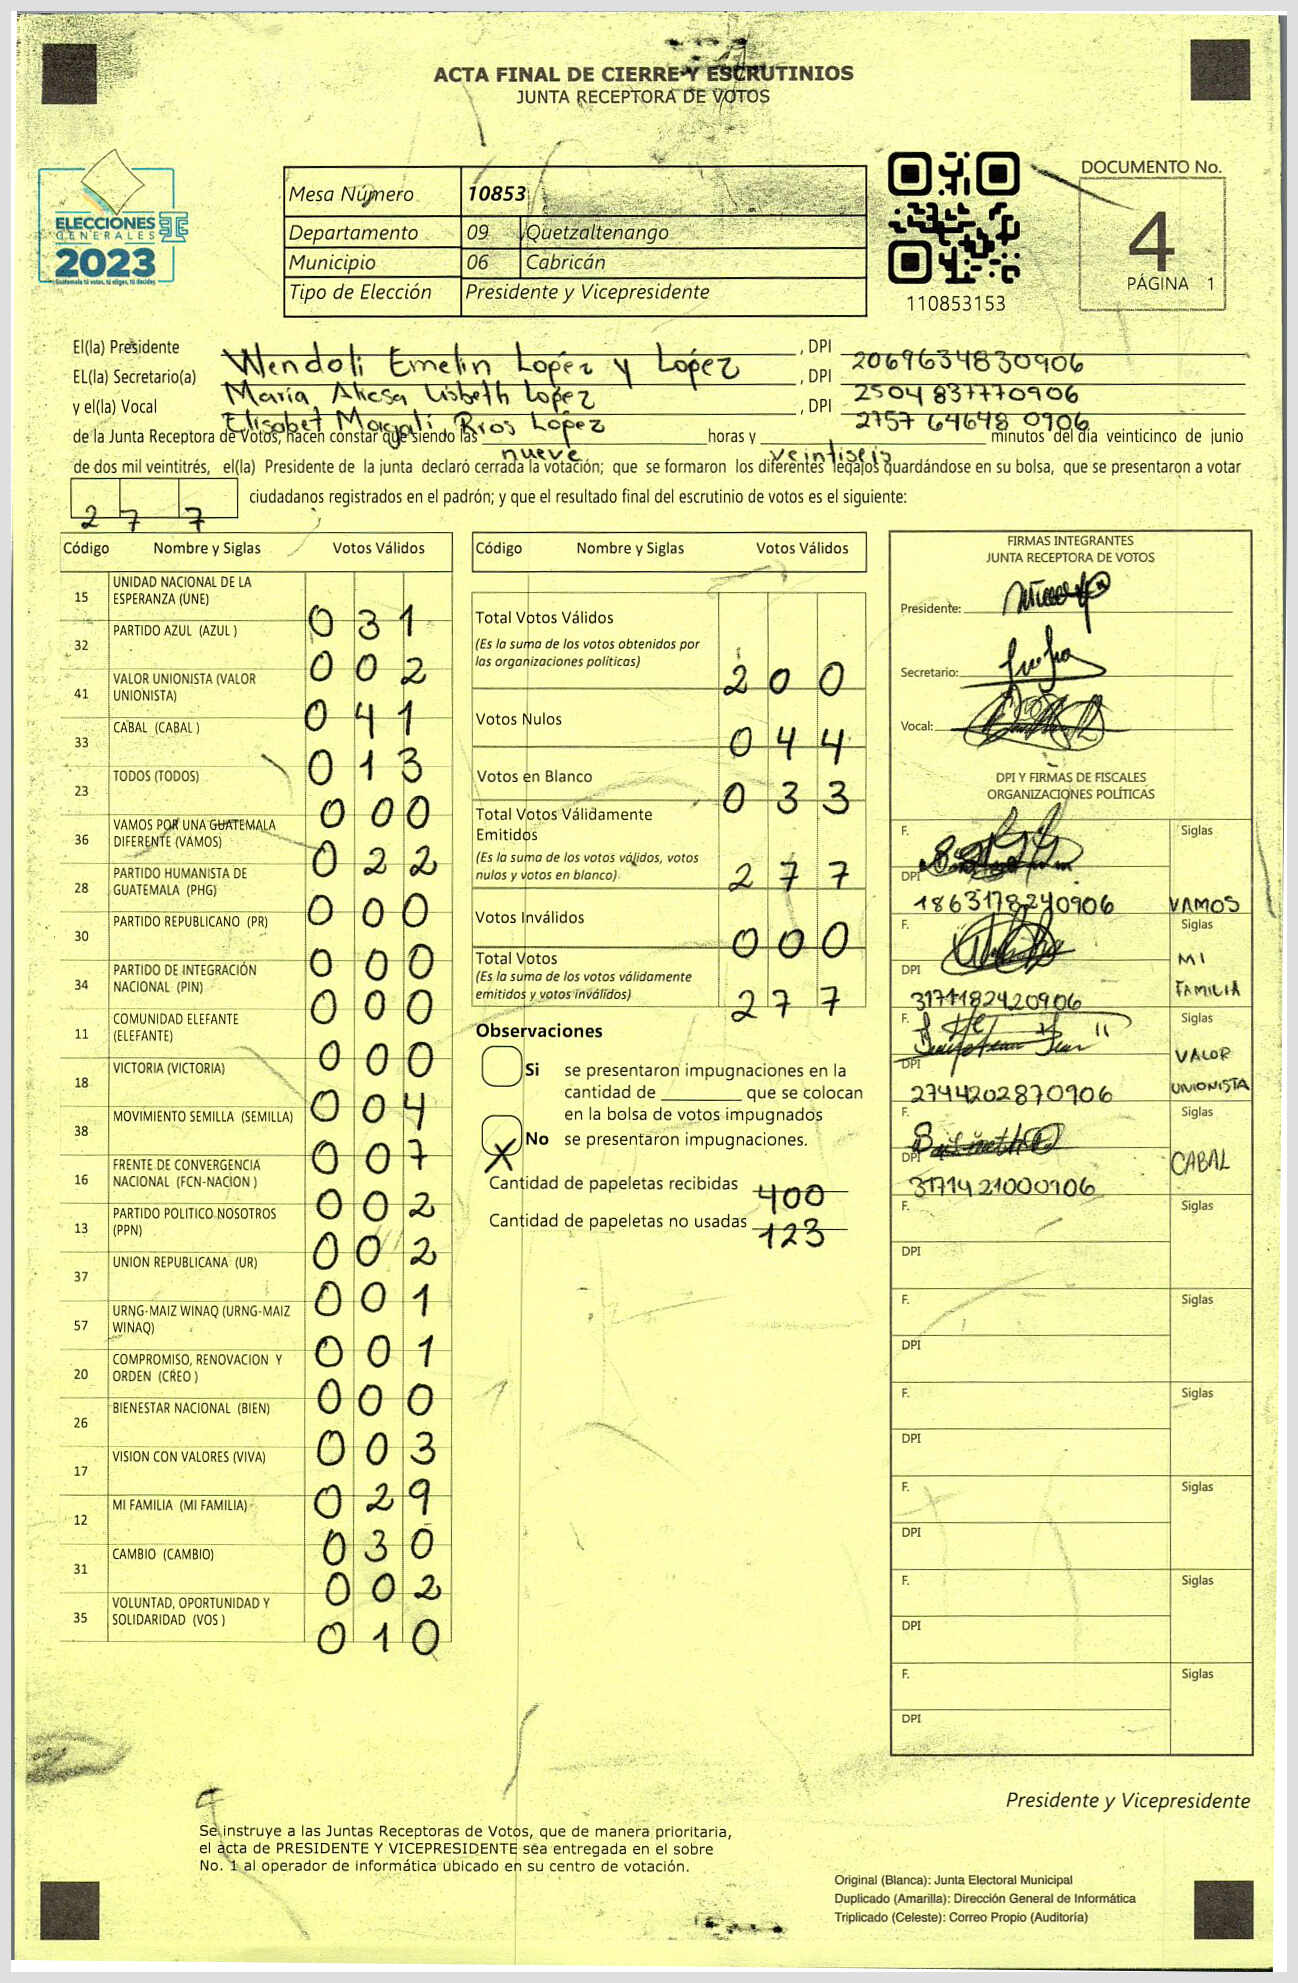 ACTA FINAL DE CIERRE Y ESCRUTINIOS
JUNTA RECEPTORA DE VOTOS
ELECCIONES
GENERALES
2023
Guatemala tú votas, tú eliges, tú decides
Mesa Número 10853
Departamento 09 Quetzaltenango
Municipio 06 Cabricán
Tipo de Elección Presidente y Vicepresidente
110853153
DOCUMENTO No.
4
PÁGINA 1
El(la) Presidente Wendoli Emelin López y López , DPI 2069634830906
EL(la) Secretario(a) María Lisbeth López , DPI 2504837770906
y el(la) Vocal Elisabet Magali Rios López , DPI 2757 64648 0906
de la Junta Receptora de Votos, hacen constar que siendo las nueve horas y veintiseis minutos del día veinticinco de junio
de dos mil veintitrés, el(la) Presidente de la junta declaró cerrada la votación; que se formaron los diferentes legajos guardándose en su bolsa, que se presentaron a votar
277 ciudadanos registrados en el padrón; y que el resultado final del escrutinio de votos es el siguiente:
Código Nombre y Siglas Votos Válidos
15 UNIDAD NACIONAL DE LA ESPERANZA (UNE) 031
32 PARTIDO AZUL (AZUL ) 002
41 VALOR UNIONISTA (VALOR UNIONISTA) 041
33 CABAL (CABAL ) 013
23 TODOS (TODOS) 000
36 VAMOS POR UNA GUATEMALA DIFERENTE (VAMOS) 022
28 PARTIDO HUMANISTA DE GUATEMALA (PHG) 000
30 PARTIDO REPUBLICANO (PR) 000
34 PARTIDO DE INTEGRACIÓN NACIONAL (PIN) 000
11 COMUNIDAD ELEFANTE (ELEFANTE) 000
18 VICTORIA (VICTORIA) 004
38 MOVIMIENTO SEMILLA (SEMILLA) 007
16 FRENTE DE CONVERGENCIA NACIONAL (FCN-NACION ) 002
13 PARTIDO POLITICO NOSOTROS (PPN) 002
37 UNION REPUBLICANA (UR) 001
57 URNG-MAIZ WINAQ (URNG-MAIZ WINAQ) 001
20 COMPROMISO, RENOVACION Y ORDEN (CREO ) 000
26 BIENESTAR NACIONAL (BIEN) 003
17 VISION CON VALORES (VIVA) 029
12 MI FAMILIA (MI FAMILIA) 030
31 CAMBIO (CAMBIO) 002
35 VOLUNTAD, OPORTUNIDAD Y SOLIDARIDAD (VOS ) 010
Código Nombre y Siglas Votos Válidos
Total Votos Válidos
(Es la suma de los votos obtenidos por
las organizaciones políticas) 200
Votos Nulos 044
Votos en Blanco 033
Total Votos Válidamente
Emitidos
(Es la suma de los votos válidos, votos
nulos y votos en blanco) 277
Votos Inválidos 000
Total Votos
(Es la suma de los votos válidamente
emitidos y votos inválidos) 277
Observaciones
Si se presentaron impugnaciones en la
cantidad de ________ que se colocan
en la bolsa de votos impugnados
X No se presentaron impugnaciones.
Cantidad de papeletas recibidas 400
Cantidad de papeletas no usadas 123
FIRMAS INTEGRANTES
JUNTA RECEPTORA DE VOTOS
Presidente:
Secretario:
Vocal:
DPI Y FIRMAS DE FISCALES
ORGANIZACIONES POLÍTICAS
F. Siglas
DPI 1863178240906 VAMOS
F. Siglas
DPI 3171182420906 MI FAMILIA
F. Siglas
DPI 2744202870906 VALOR UNIONISTA
F. Siglas
DPI 3171421000906 CABAL
F. Siglas
DPI
F. Siglas
DPI
F. Siglas
DPI
F. Siglas
DPI
F. Siglas
DPI
F. Siglas
DPI
Presidente y Vicepresidente
Se instruye a las Juntas Receptoras de Votos, que de manera prioritaria,
el acta de PRESIDENTE Y VICEPRESIDENTE sea entregada en el sobre
No. 1 al operador de informática ubicado en su centro de votación.
Original (Blanca): Junta Electoral Municipal
Duplicado (Amarilla): Dirección General de Informática
Triplicado (Celeste): Correo Propio (Auditoría)